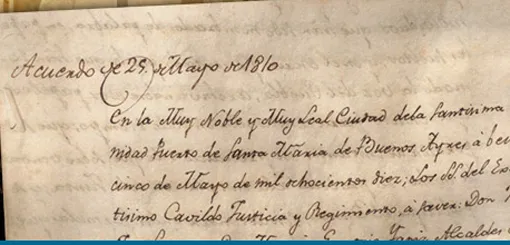 Acuerdo de 25 de Mayo de 1810
En la Muy Noble y Muy Leal Ciudad dela Santisima
nidad Puerto de Santa Maria de Buenos Ayres à bei
cinco de Mayo de mil ochocientos diez; Los SS. del Ex
tisimo Cavildo Justicia y Regimiento, à saver: Don
Alcaldes